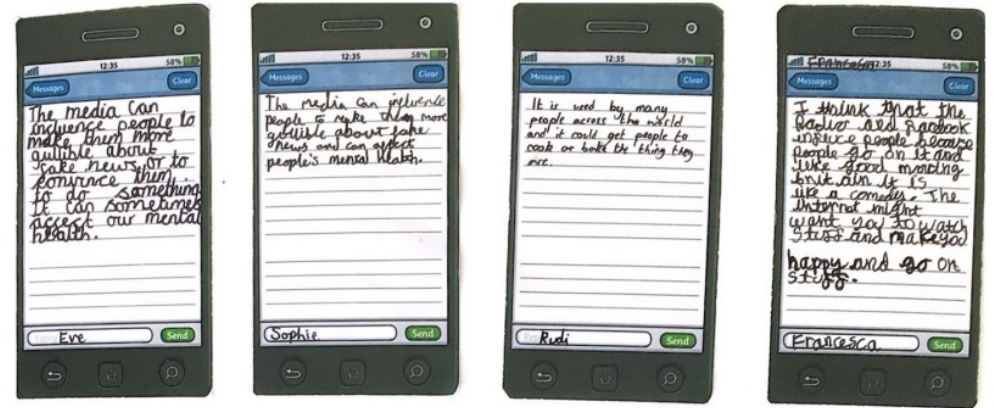 12:35 58%
Messages Clear
The media Can
incluence people to
make them more
gullible about
fake news, or to
convince them
to do something
It can sometimes
accect our mental
health.
Eve Send
12:35 58%
Messages Clear
The media can influence
people to make them more
gullible about fake
news and can affect
people's mental Health.
Sophie Send
12:35 58%
Messages Clear
It is used by many
people across the world
and it could get people to
cook or bake the thing they
are.
Rudi Send
Francesca 12:35 58%
Messages Clear
I think that the
Radio and
people because
people go on it and
like good morning
brit ain it is
like a comedy. The
Internet might
want you to watch
stuff and make you
happy and go on
stuff.
Francesca Send